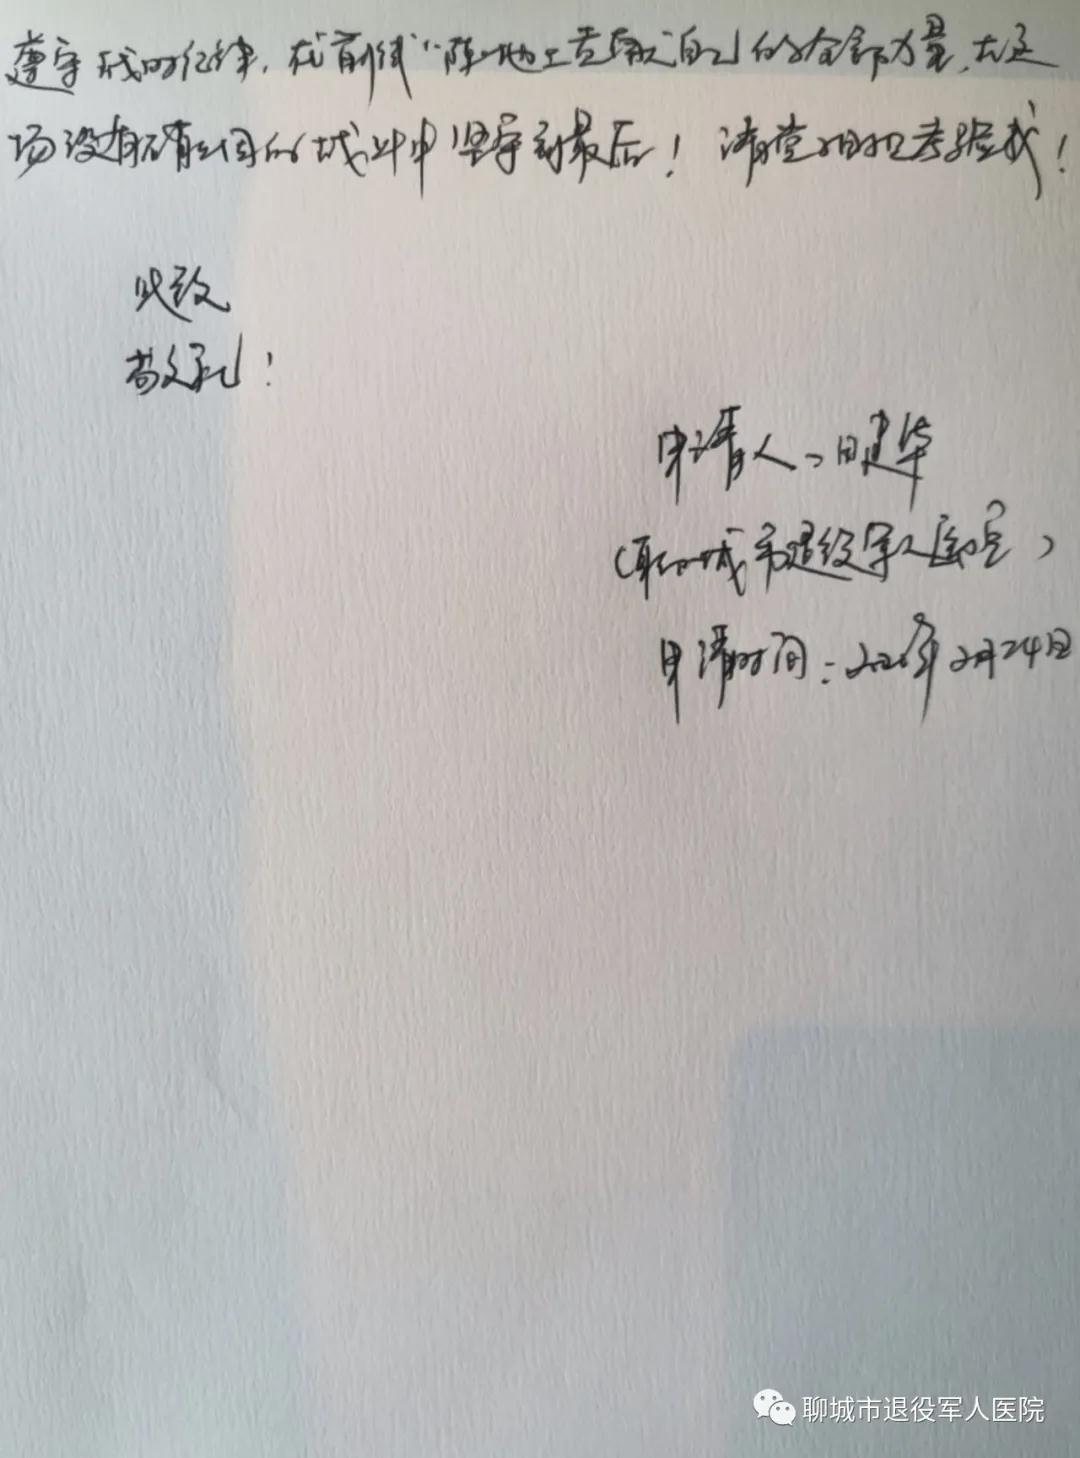 遵守战时纪律，在前线“阵地”上贡献自己的全部力量，在这
场没有硝烟的战斗中坚守到最后！请党组织考验我！
此致
敬礼！
申请人：建华
（聊城市退役军人医院）
申请时间：2020年2月24日
聊城市退役军人医院